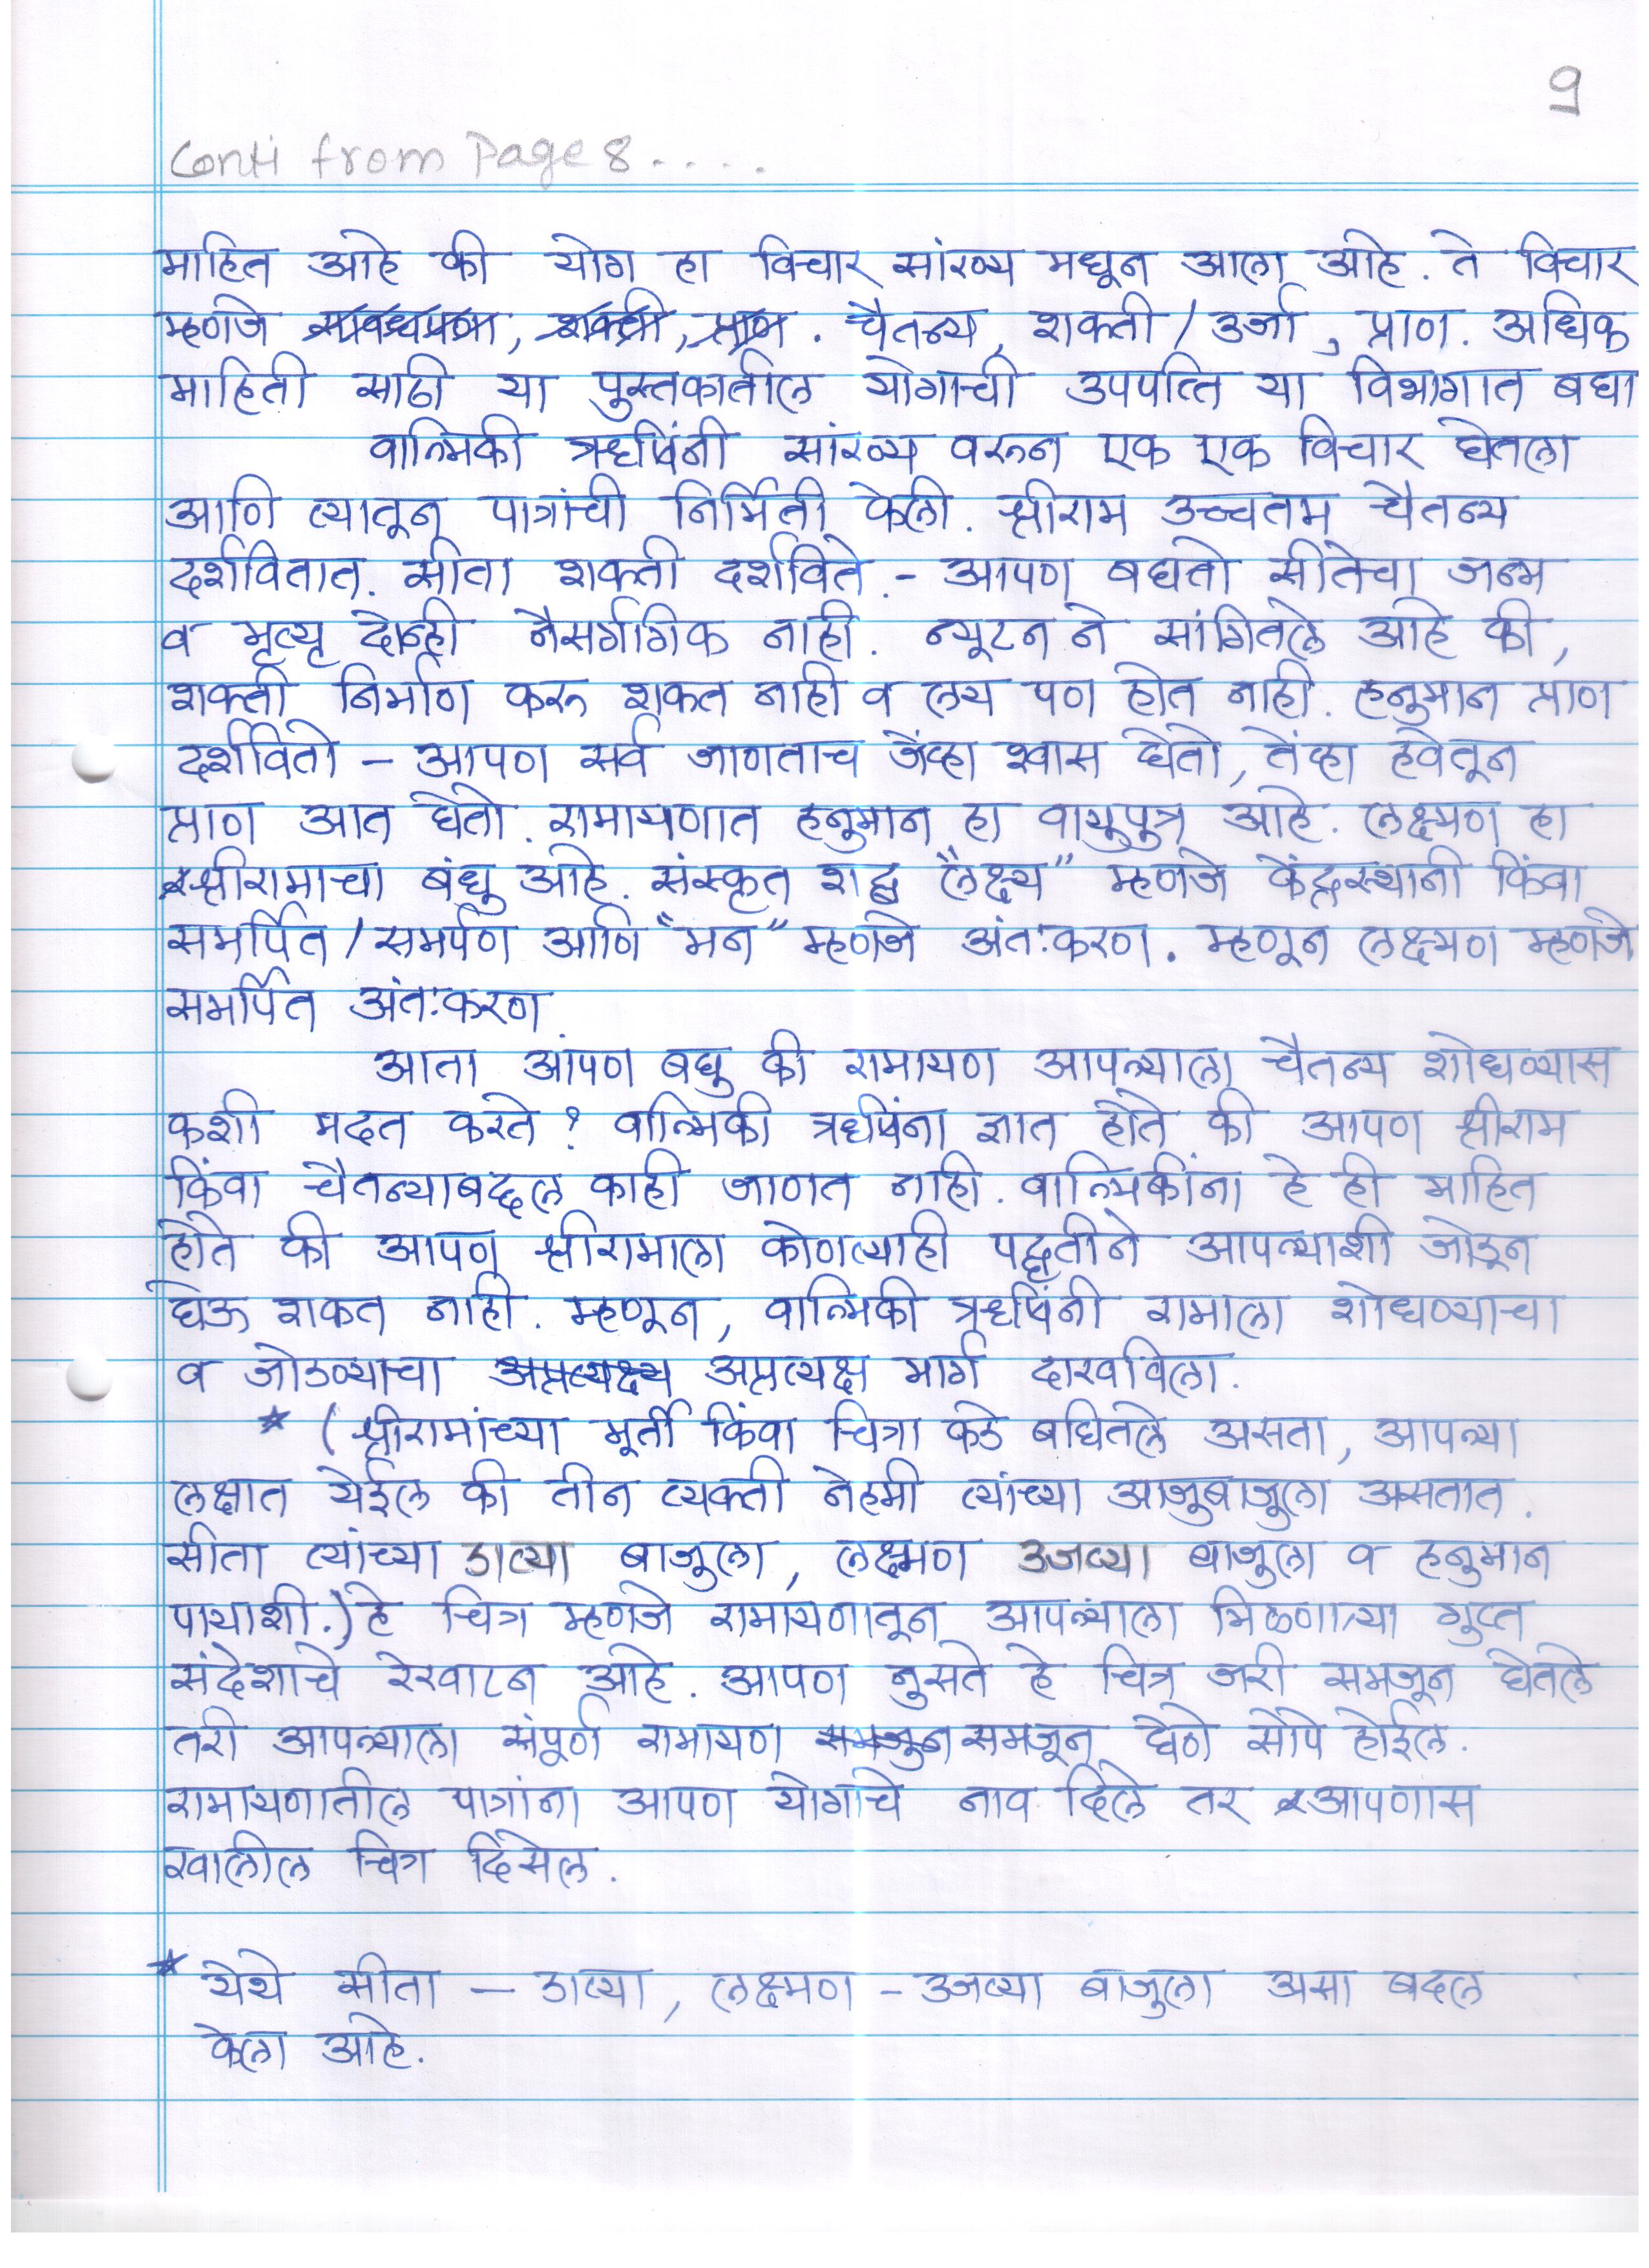 9
Conti from Page 8....
माहित आहे की योग हा विचार सांख्य मधून आला आहे. ते विचार
म्हणजे शक्ती, प्राण. चैतन्य, शक्ती / उर्जा, प्राण. अधिक
माहिती साठी या पुस्तकातील योगाची उपपत्ति या विभागात बघा
वाल्मिकी ऋषिंनी सांख्य वरून एक एक विचार घेतला
आणि त्यातून पात्रांची निर्मिती केली. श्रीराम उच्चतम चैतन्य
दर्शवितात. सीता शक्ती दर्शविते.- आपण बघतो सीतेचा जन्म
व मृत्यू दोन्ही नैसर्गागिक नाही. न्यूटन ने सांगितले आहे की,
शक्ती निर्माण करू शकत नाही व लय पण होत नाही. हनुमान प्राण
दर्शवितो – आपण सर्व जाणताच जेंव्हा श्वास घेतो, तेंव्हा हवेतून
प्राण आत घेतो. रामायणात हनुमान हा वायुपुत्र आहे. लक्ष्मण हा
श्रीरामाचा बंधु आहे. संस्कृत शद्ब "लक्ष्य" म्हणजे केंद्रस्थानी किंवा
समर्पित / समर्पण आणि "मन" म्हणजे अंत:करण. म्हणून लक्ष्मण म्हणजे
समर्पित अंत:करण.
आता आपण बघु की रामायण आपल्याला चैतन्य शोधण्यास
कशी मदत करते? वाल्मिकी ऋषिंना ज्ञात होते की आपण श्रीराम
किंवा चैतन्याबद्दल काही जाणत नाही. वाल्मिकींना हे ही माहित
होते की आपण श्रीरामाला कोणत्याही पद्धतीने आपल्याशी जोडून
घेऊ शकत नाही. म्हणून, वाल्मिकी ऋषिंनी रामाला शोधण्याचा
व जोडण्याचा अप्रत्यक्ष्य अप्रत्यक्ष मार्ग दाखविला.
* (श्रीरामांच्या मूर्ती किंवा चित्रा कडे बघितले असता, आपल्या
लक्षात येईल की तीन व्यक्ती नेहमी त्यांच्या आजुबाजुला असतात.
सीता त्यांच्या डाव्या बाजुला, लक्ष्मण उजव्या बाजुला व हनुमान
पायाशी.) हे चित्र म्हणजे रामायणातून आपल्याला मिळणाऱ्या गुप्त
संदेशाचे रेखाटन आहे. आपण नुसते हे चित्र जरी समजून घेतले
तरी आपल्याला संपूर्ण रामायण समजुन समजून घेणे सोपे होईल.
रामायणातील पात्रांना आपण योगाचे नाव दिले तर आपणास
खालील चित्र दिसेल.
* येथे सीता – डाव्या, लक्ष्मण – उजव्या बाजुला असा बदल
केला आहे.